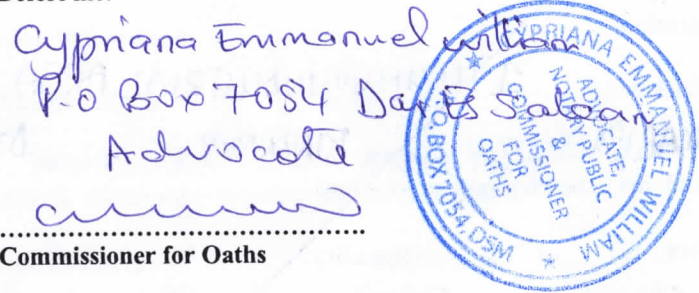 Cypriana Emmanuel William
P.O Box 7054 Dar Es Salaam
Advocate
Commissioner for Oaths
CYPRIANA EMMANUEL WILLIAM
P.O. BOX 7054, DSM
ADVOCATE,
NOTARY PUBLIC
&
COMMISSIONER
FOR
OATHS